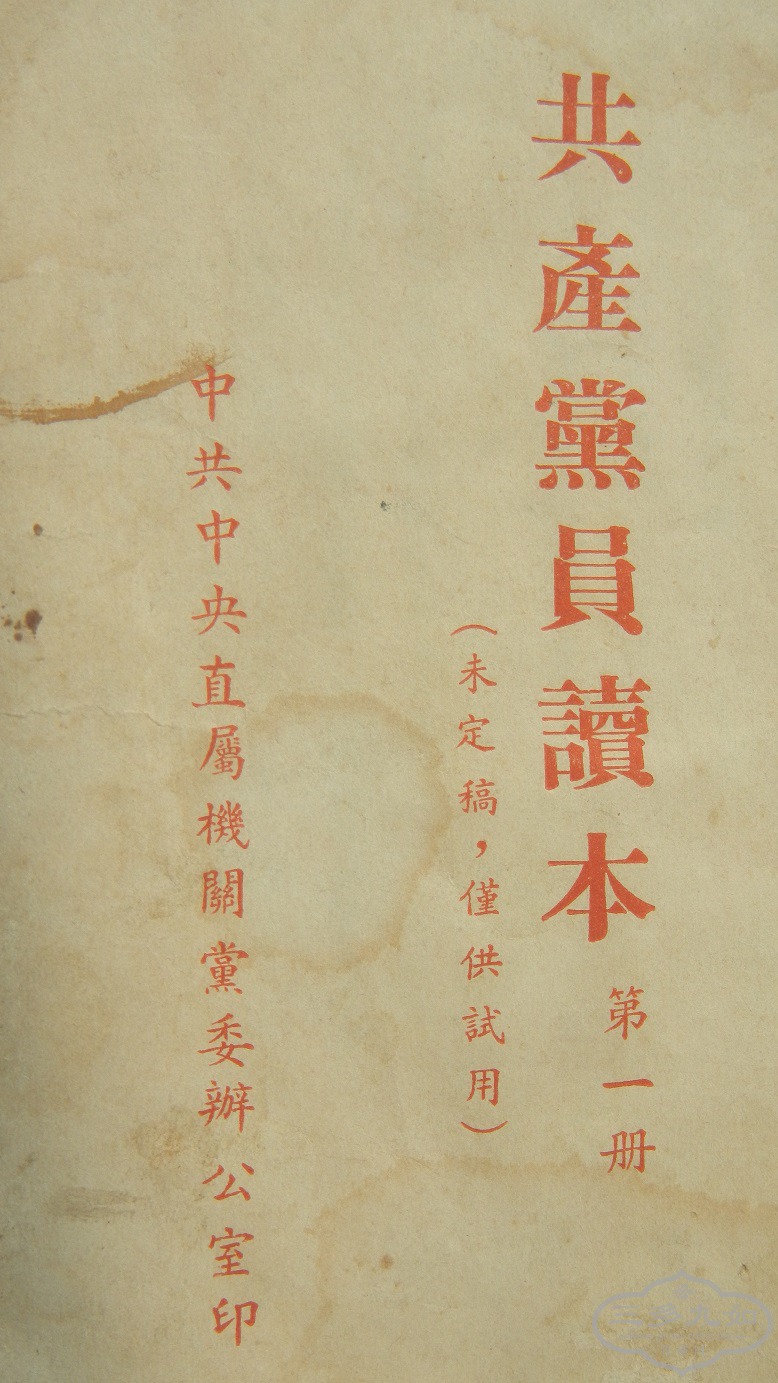 共產黨員讀本
第一册
（未定稿，僅供試用）
中共中央直屬機關黨委辦公室印